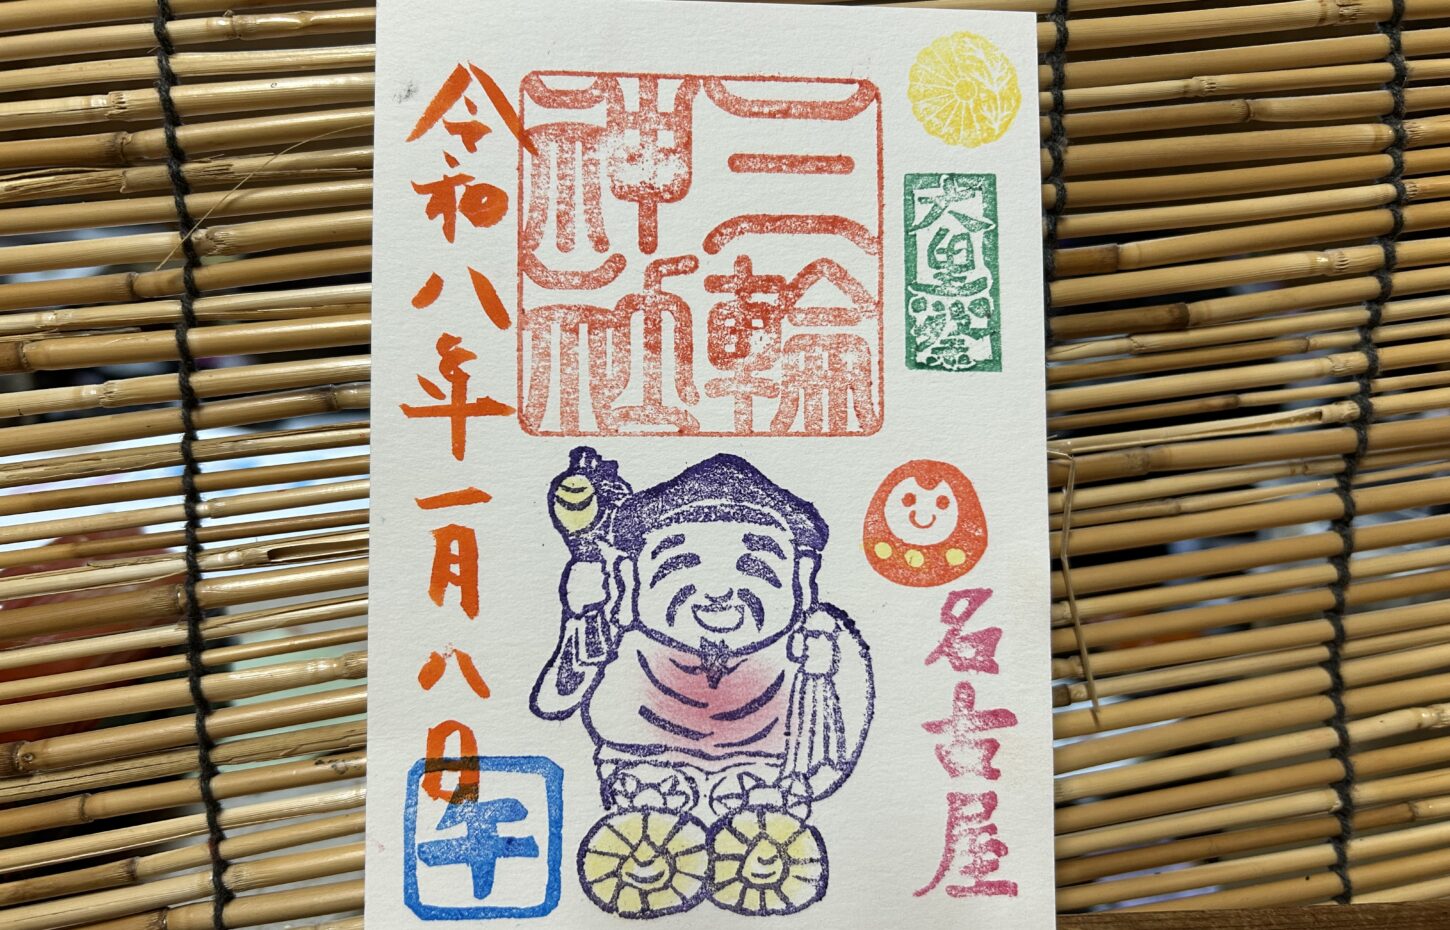 大黒祭
名古屋
三輪
神社
令和八年一月八日
午